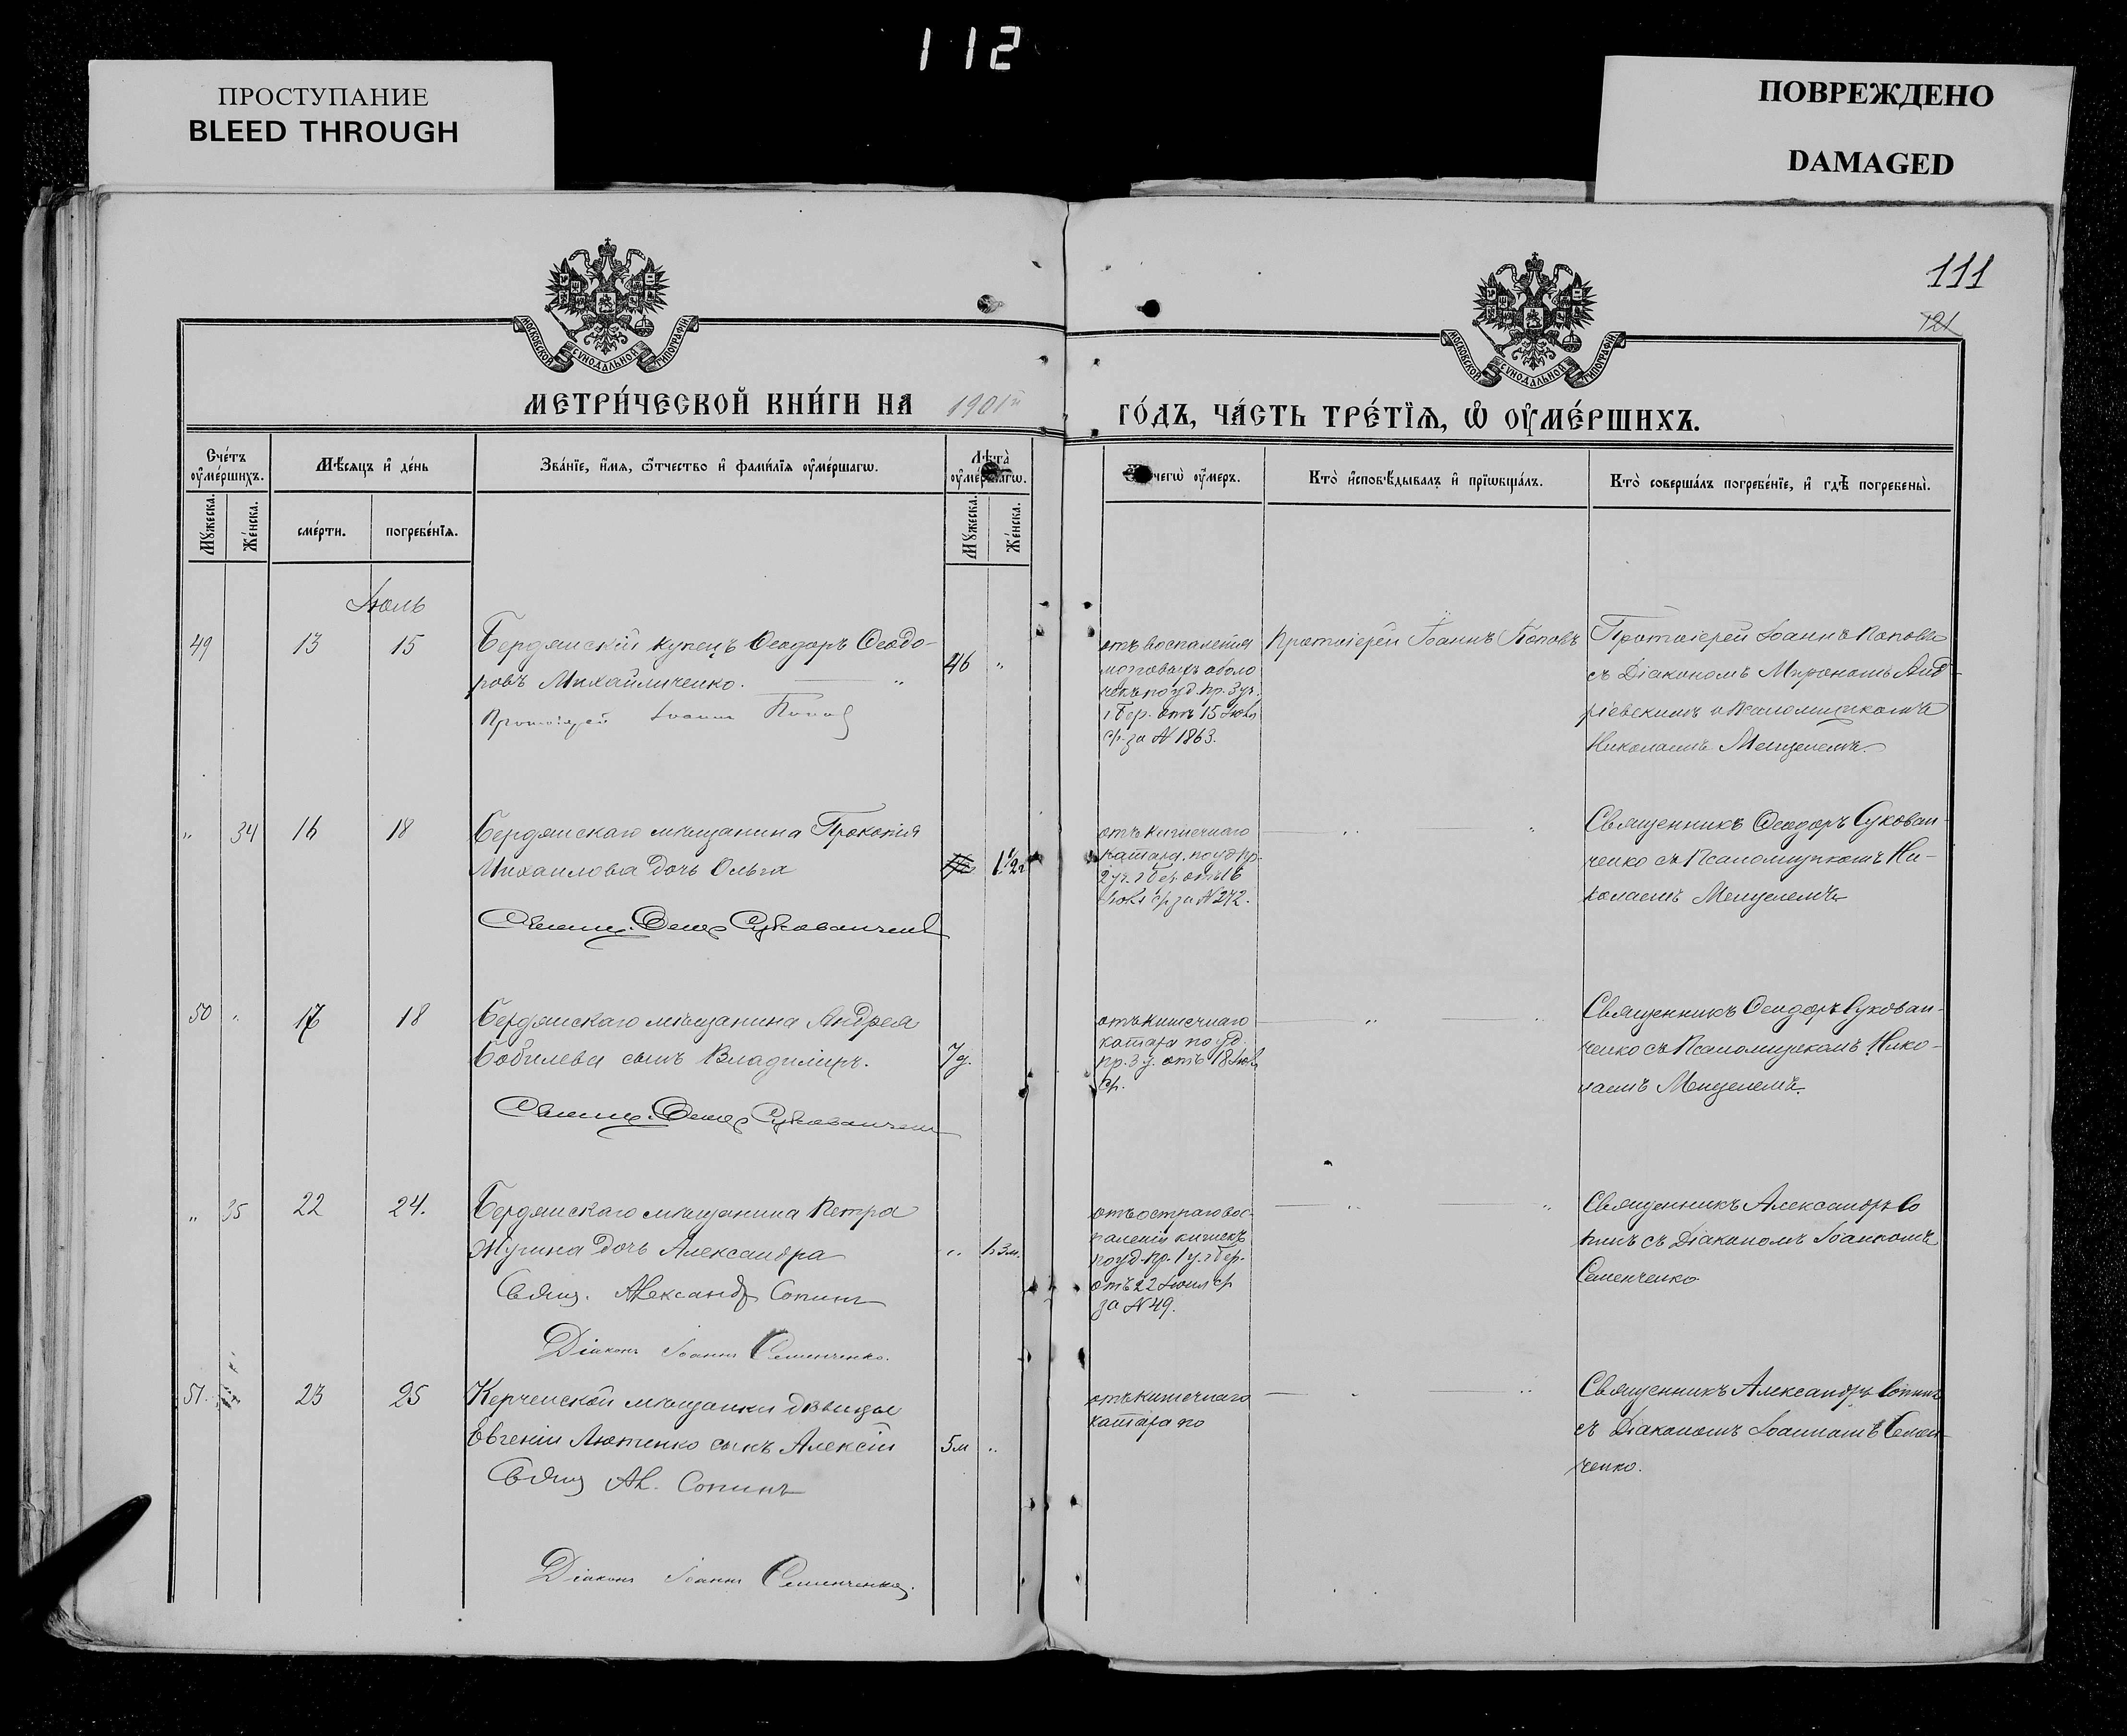 112
ПРОСТУПАНИЕ
BLEED THROUGH
ПОВРЕЖДЕНО
DAMAGED
111
121
МОСКОВСКОЙ СѴНОДАЛЬНОЙ ТИПОГРАФІИ
МОСКОВСКОЙ СѴНОДАЛЬНОЙ ТИПОГРАФІИ
МЕТРИ́ЧЕСКОЙ КНИ́ГИ НА 1901й
ГО́ДЪ, ЧА́СТЬ ТРЕ́ТЇѦ, Ѽ ОУ҆МЕ́РШИХЪ.
Сче́тъ оу҆ме́ршихъ.
Мꙋжеска.
Же́нска.
Мѣ́сѧцъ и҆ де́нь
сме́рти.
погребе́нїѧ.
Зва́нїе, и҆́мѧ, ѻ҆́тчество и҆ фами́лїѧ оу҆ме́ршагѡ.
Лѣ̑та оу҆ме́ршагѡ.
Мꙋжеска.
Же́нска.
чегѡ̀ оу҆́меръ.
Кто̀ и҆сповѣ́дывалъ и҆ прїѡбща́лъ.
Кто̀ соверша́лъ погребе́нїе, и҆ гдѣ̀ погребены̀.
Іюль
49 13 15
Бердянскій купецъ Ѳеодоръ Ѳеодо-
ровъ Михайличенко. "
46 "
Протоіерей Іоаннъ Попов
отъ воспаленія
мозговыхъ оболо
чекъ по уд. пр. 3 уч.
г. Бер. отъ 15 Іюля
с/г. за N 1863.
Протоіерей Іоаннъ Поповъ
Протоіерей Іоаннъ Поповъ
съ Діакономъ Мирономъ Анд-
ріевскимъ и Псаломщикомъ
Николаемъ Менцелемъ.
" 34 16 18
Бердянскаго мѣщанина Прокопія
Михаилова дочь Ольга
1 1/2 г
Священ. Ѳеод. Сукованченко
отъ кишечнаго
катара. по уд. пр.
2 уч. г. Бер. отъ 16
Іюля с/г за N 272.
" "
Священникъ Ѳеодоръ Сукован-
ченко съ Псаломщикомъ Ни-
колаемъ Менцелемъ
50 " 17 18
Бердянскаго мѣщанина Андрея
Бобилева сынъ Владиміръ.
7 д.
Священ. Ѳеод. Сукованченко
отъ кишечнаго
катара по уд.
пр. 3 у. отъ 18 Іюля
с/г.
" "
Священникъ Ѳеодоръ Сукован-
ченко съ Псаломщикомъ Нико-
лаемъ Менцелемъ.
" 35 22 24.
Бердянскаго мѣщанина Петра
Жугина дочь Александра
" 1 г. 3 м.
Свящ. Александр Сопинъ
Діаконъ Іоаннъ Семенченко.
отъ остраго вос-
паленія кишекъ
по уд. пр. 1 у. г. Бер.
отъ 22 Іюля с/г
за N 49.
" "
Священникъ Александръ Со
пинъ съ Діакономъ Іоанномъ
Семенченко
51. 23 25
Керченской мѣщанки дѣвицы
Евгеніи Лютенко сынъ Алексій
5 м "
Свящ Ал. Сопинъ
Діаконъ Іоаннъ Семенченко.
отъ кишечнаго
катара по
" "
Священникъ Александръ Сопинъ
съ Діакономъ Іоанномъ Семен-
ченко.